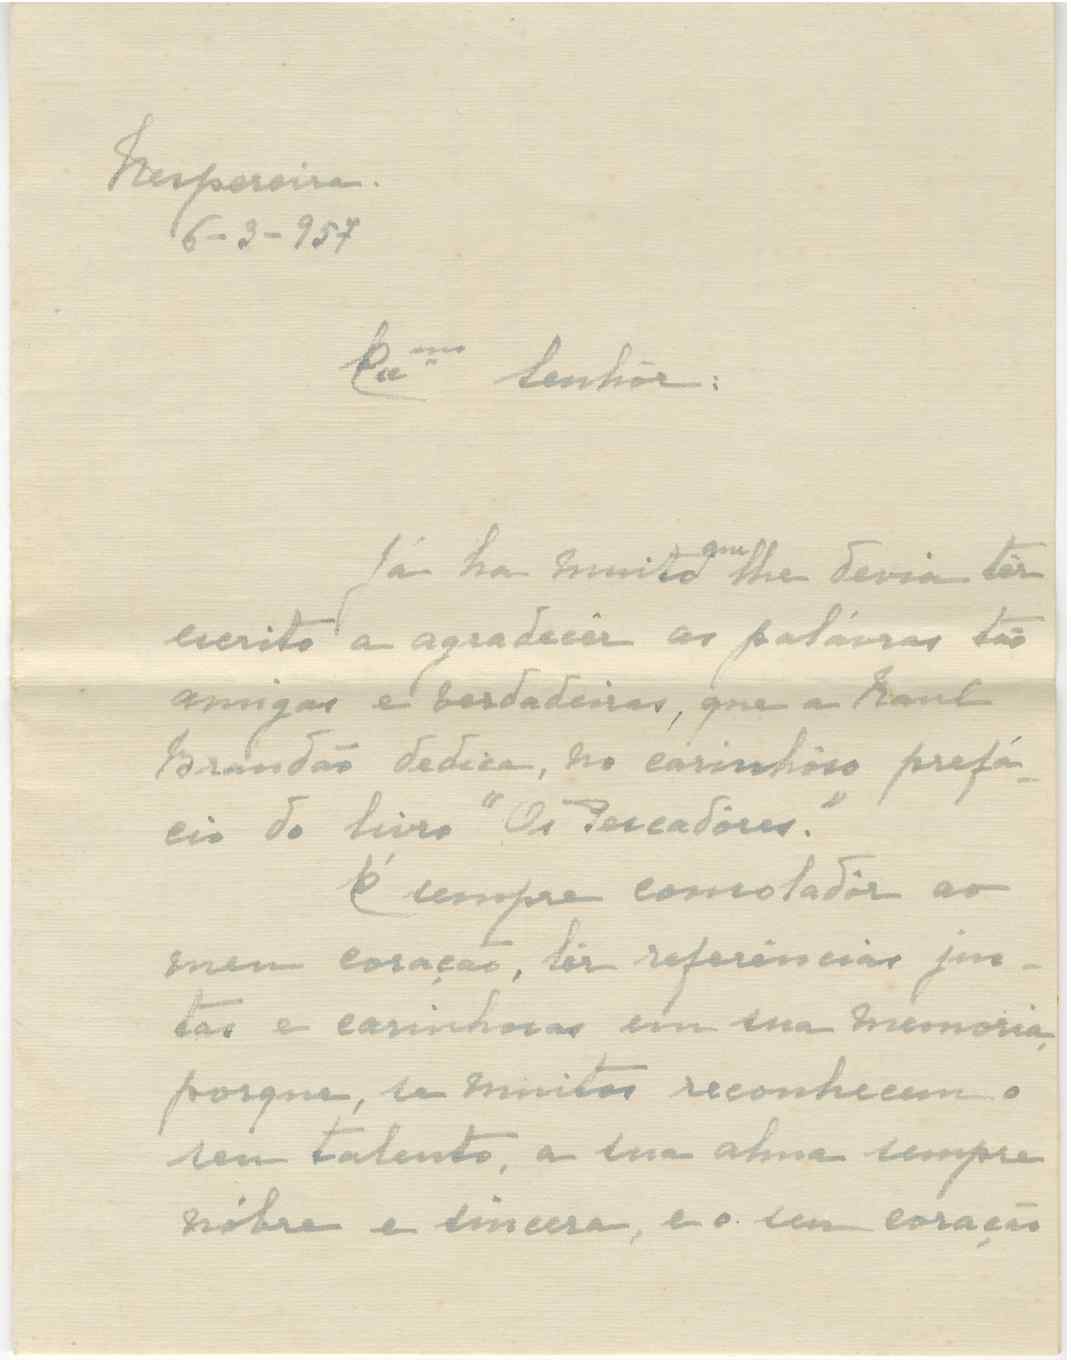 Nespereira.
6-3-957
Exmo Senhôr:
Já ha muito que lhe devia têr
escrito a agradecêr as palávras tão
amigas e verdadeiras, que a Raul
Brandão dedica, no carinhôso prefá-
cio do livro "Os Pescadôres."
É sempre consoladôr ao
meu coração, lêr referências jus-
tas e carinhosas em sua memoria,
porque, se muitos reconhecem o
seu talento, a sua alma sempre
nóbre e sincera, e o seu coração